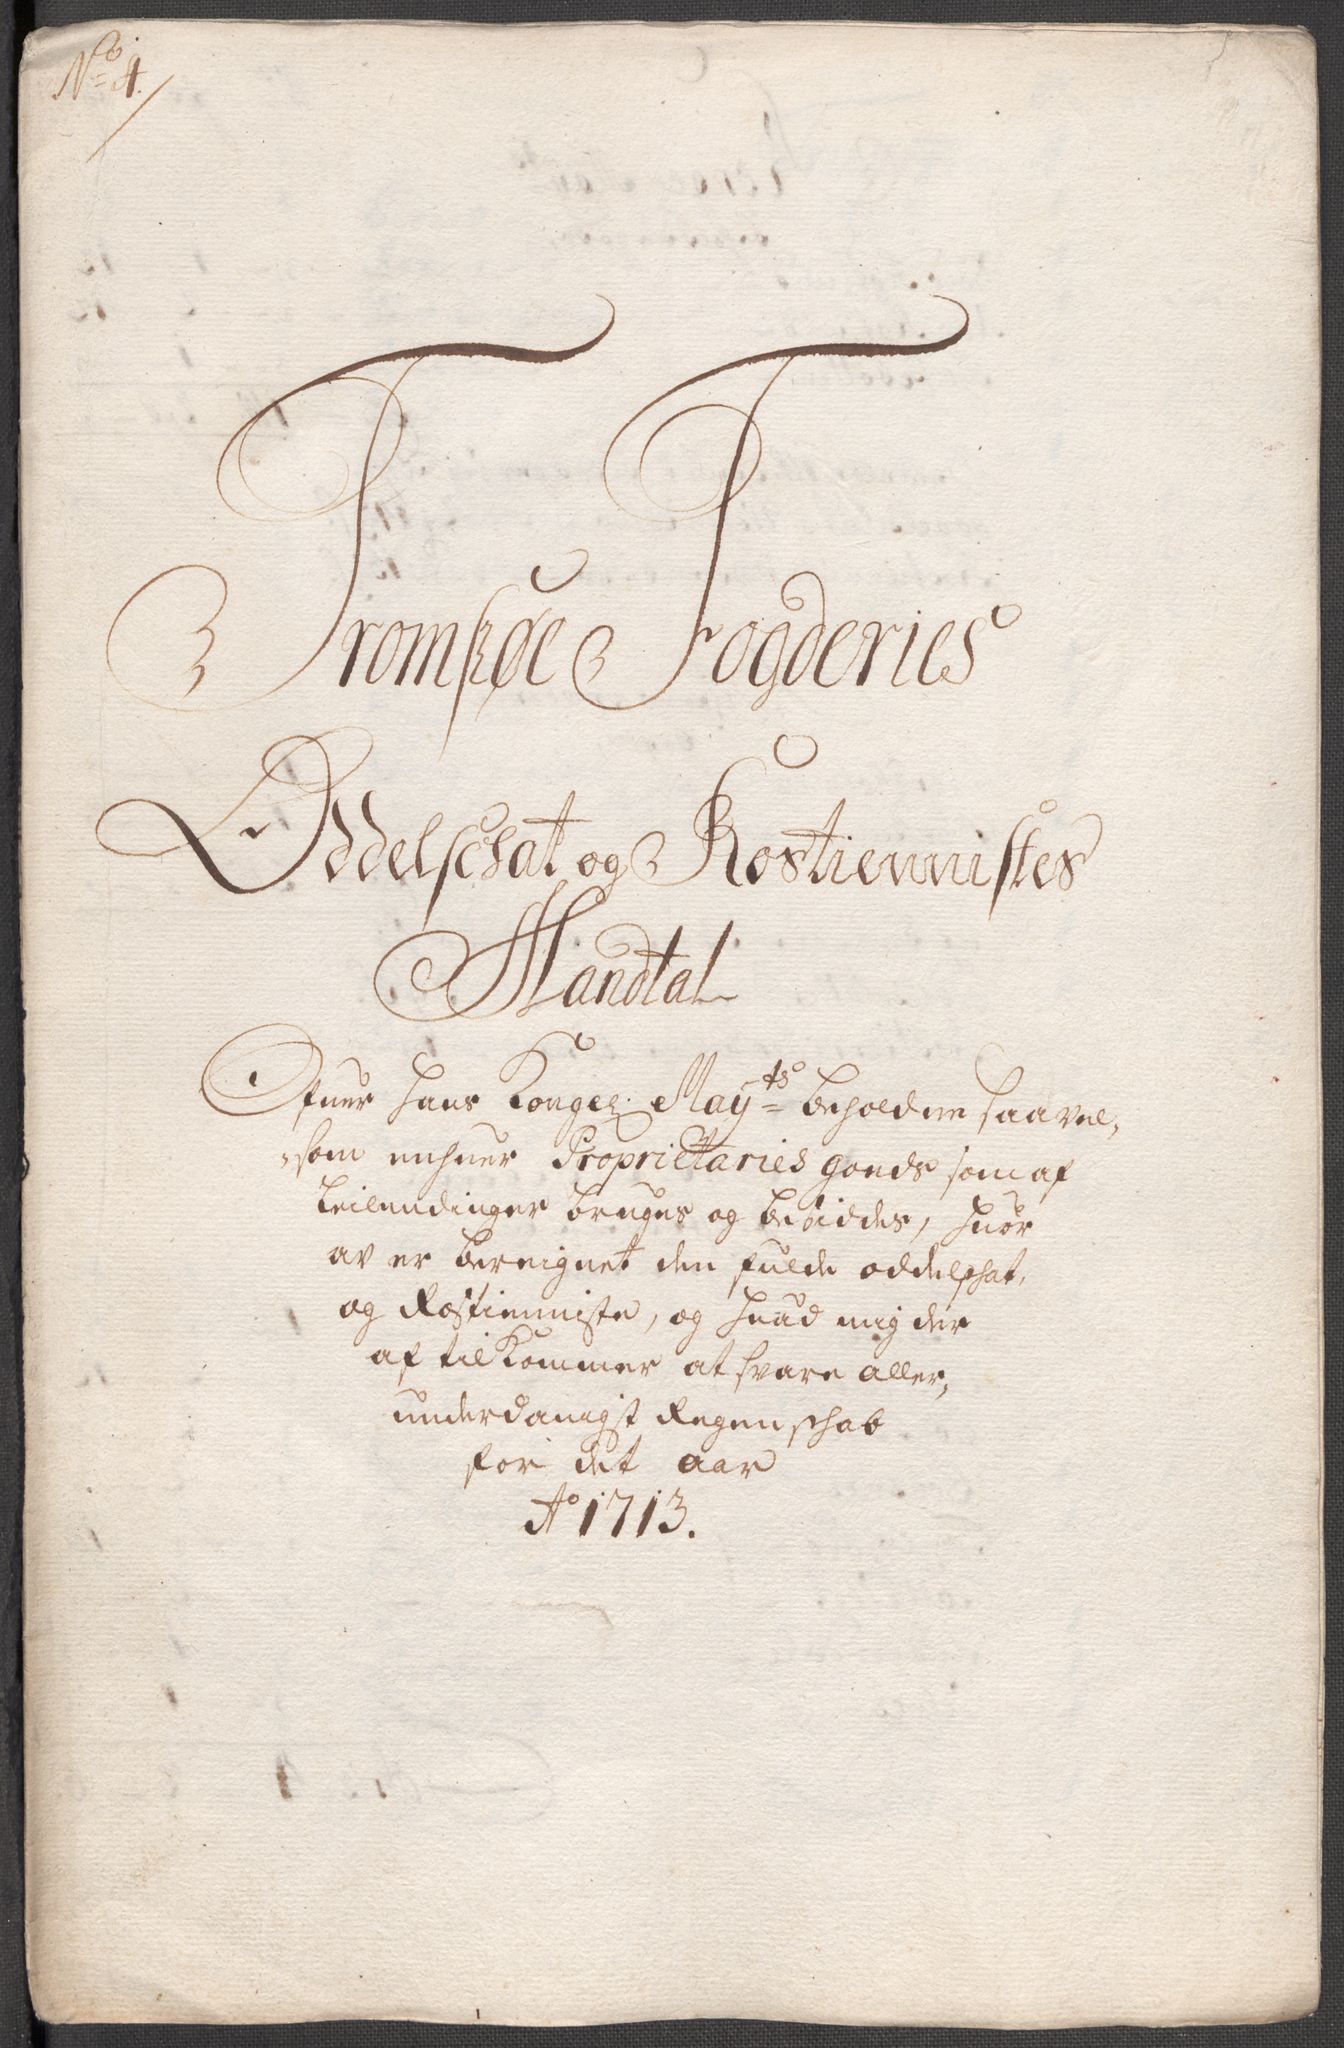 No 4.
Tromsøe Fogderies
Oddelschat og Rostiennistes
Mandtal
Ofuer hans Kongel: Mayts beholdne saavel,
som enhuer Proprietaries goeds som af
Leilendinger bruges og besiddes, huor
av er bereignet den fulde oddelschat,
og Rostienniste, og huad mig der
af tilkommer at svare aller,
underdanigst Regenschab
for det aar
Ao 1713.